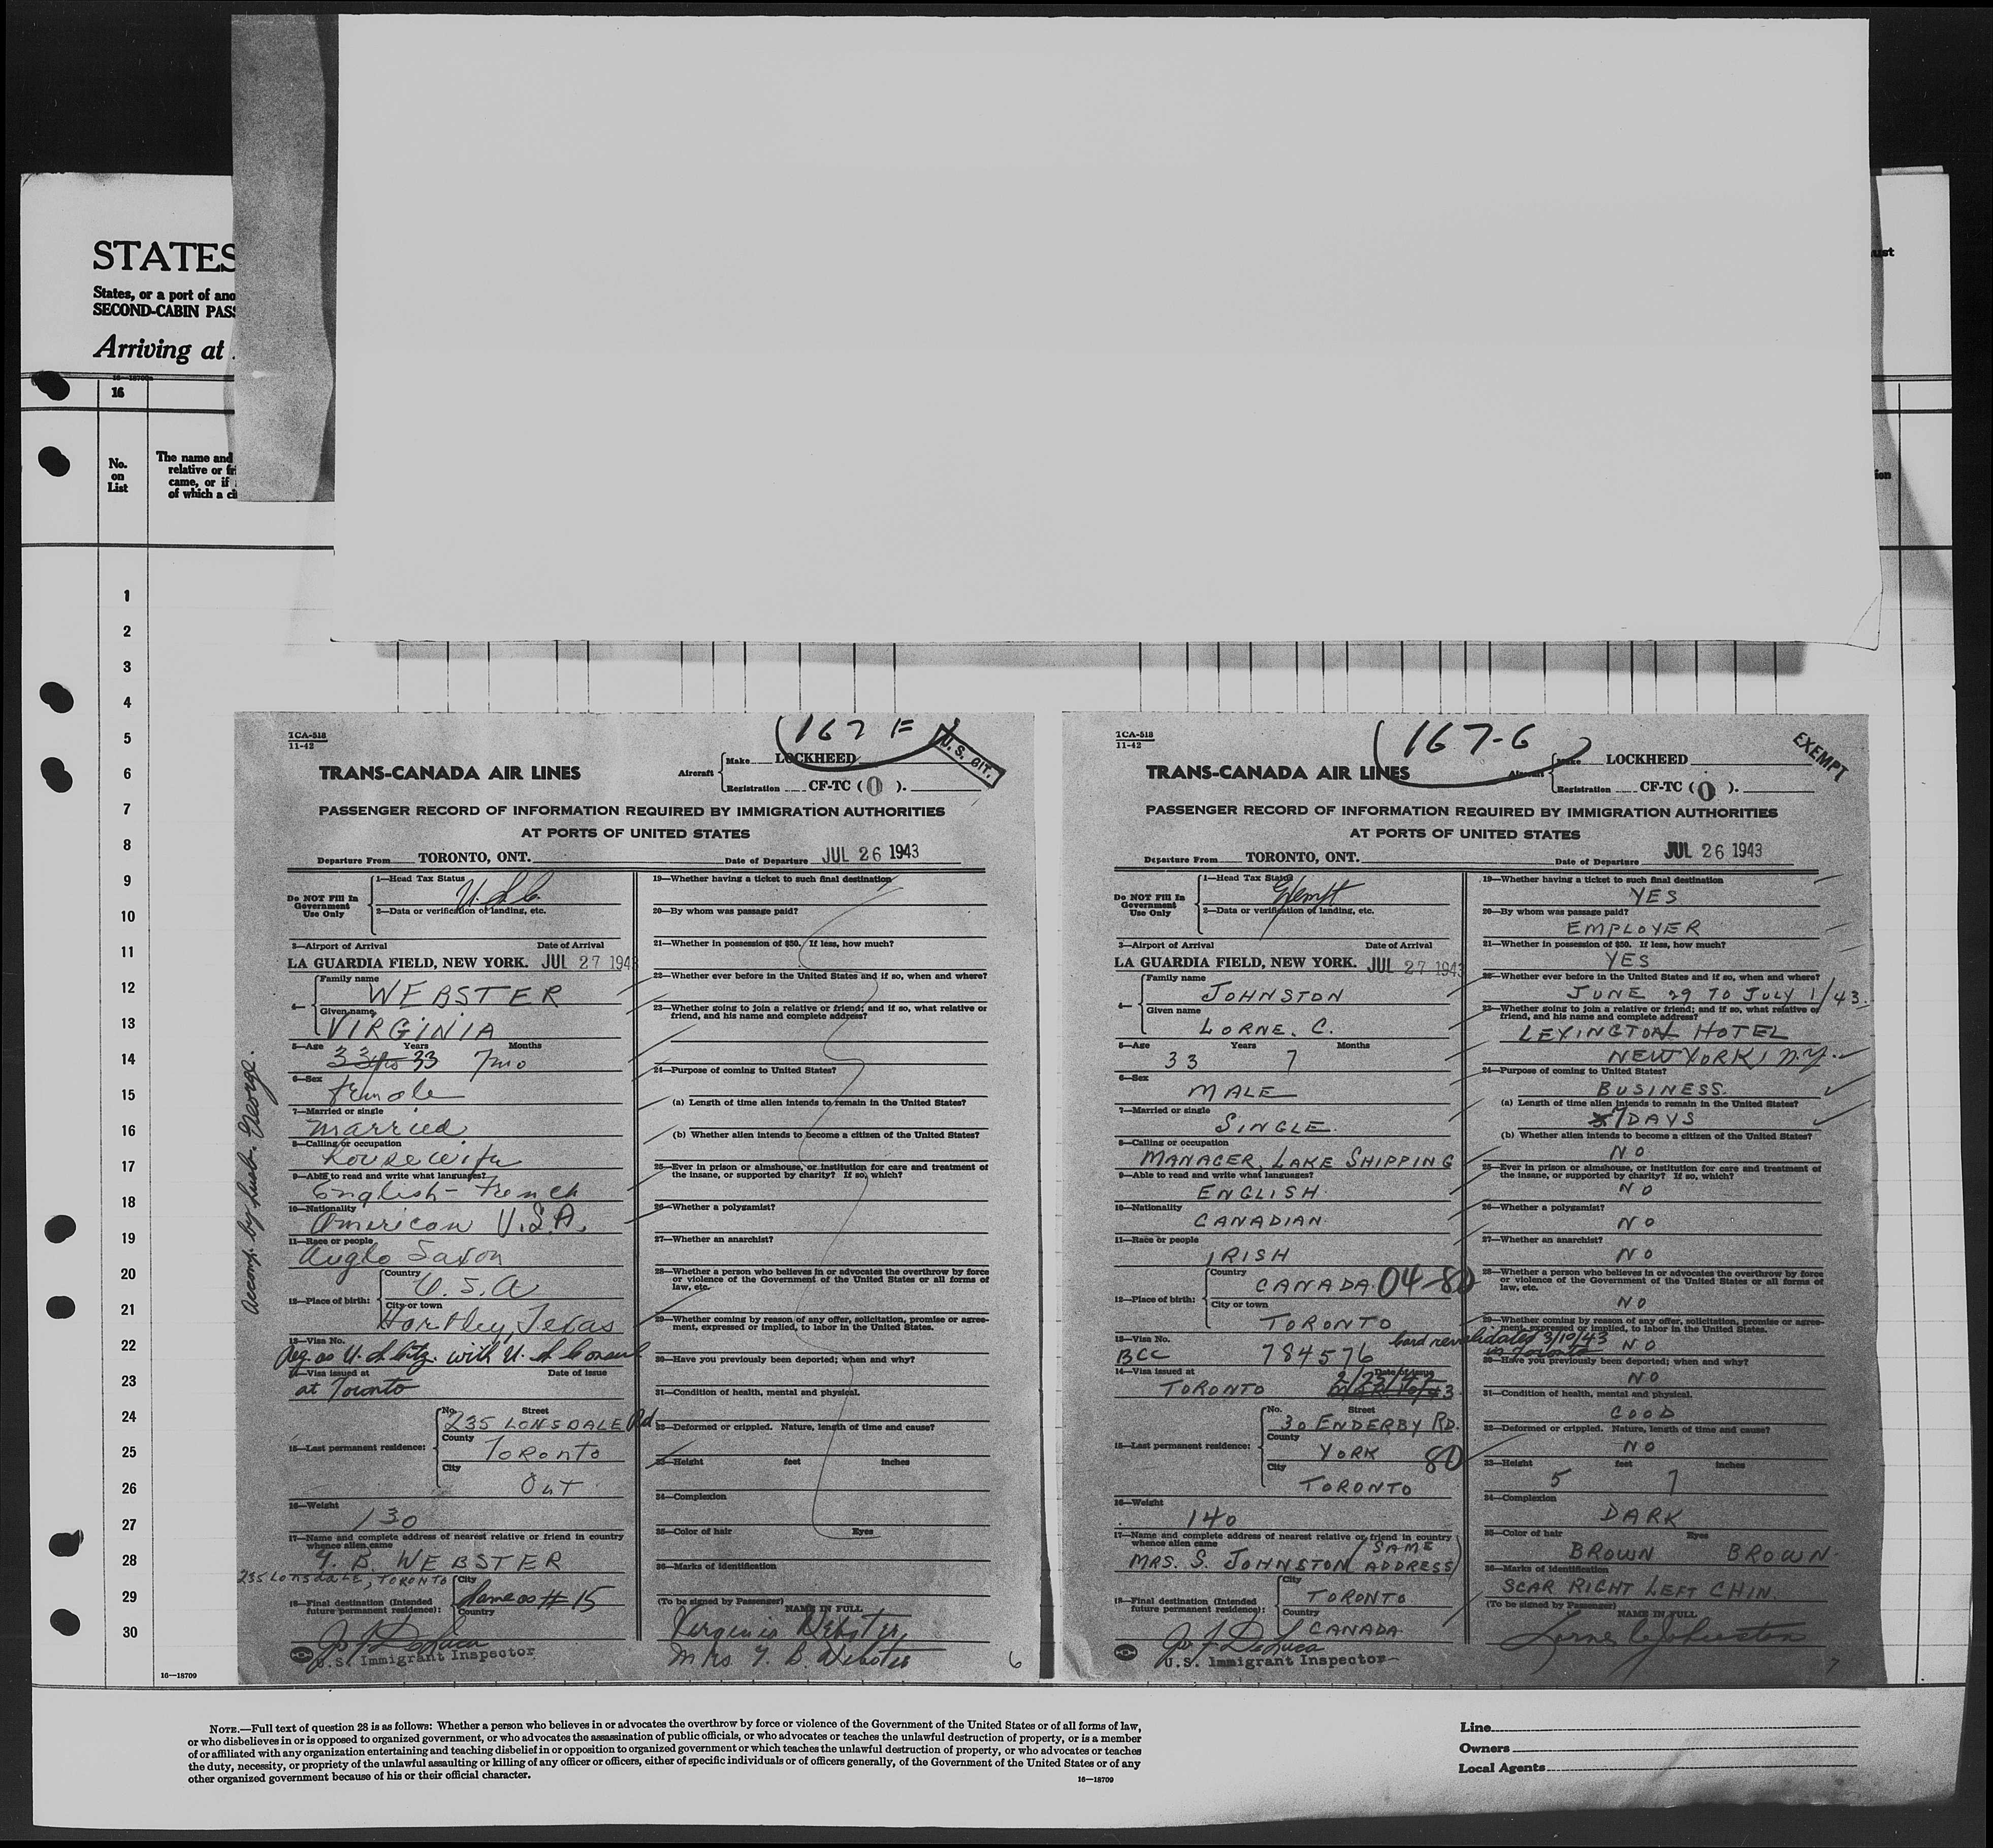 STATES
States, or a port of ano
SECOND-CABIN PASS
Arriving at
16
No. on List
The name and
relative or fr
came, or if
of which a ci
ust
ion
1
2
3
4
5
6
7
8
9
10
11
12
13
14
15
16
17
18
19
20
21
22
23
24
25
26
27
28
29
30
16—18709
TCA-518
11-42
167 F
U. S. CIT.
TRANS-CANADA AIR LINES
Aircraft
Make LOCKHEED
Registration CF-TC ( O ).
PASSENGER RECORD OF INFORMATION REQUIRED BY IMMIGRATION AUTHORITIES
AT PORTS OF UNITED STATES
Departure From TORONTO, ONT. Date of Departure JUL 26 1943
Do NOT Fill In Government Use Only
1—Head Tax Status
U.S.C.
2—Data or verification of landing, etc.
3—Airport of Arrival Date of Arrival
LA GUARDIA FIELD, NEW YORK. JUL 27 1943
4— Family name
WEBSTER
Given name
VIRGINIA
5—Age Years Months
33 7 mo
6—Sex
female
7—Married or single
married
8—Calling or occupation
housewife
9—Able to read and write what languages?
English - French
10—Nationality
American U.S.A.
11—Race or people
Anglo Saxon
12—Place of birth: Country
U.S.A
City or town
Hartley, Texas
13—Visa No.
Reg. as U.S. Citz. with U.S. Consul
14—Visa issued at Date of issue
at Toronto
15—Last permanent residence: No. Street
235 LONSDALE Rd
County
TORONTO
City
ONT
16—Weight
130
17—Name and complete address of nearest relative or friend in country whence alien came
WEBSTER
235 LONSDALE, TORONTO
18—Final destination (Intended future permanent residence): City
Same as # 15
Country
Jo. F. DeLuca
U.S. Immigrant Inspector
Accomp. by husb. George.
19—Whether having a ticket to such final destination
20—By whom was passage paid?
21—Whether in possession of $50. If less, how much?
22—Whether ever before in the United States and if so, when and where?
23—Whether going to join a relative or friend; and if so, what relative or friend, and his name and complete address?
24—Purpose of coming to United States?
(a) Length of time alien intends to remain in the United States?
(b) Whether alien intends to become a citizen of the United States?
25—Ever in prison or almshouse, or institution for care and treatment of the insane, or supported by charity? If so, which?
26—Whether a polygamist?
27—Whether an anarchist?
28—Whether a person who believes in or advocates the overthrow by force or violence of the Government of the United States or all forms of law, etc.
29—Whether coming by reason of any offer, solicitation, promise or agreement, expressed or implied, to labor in the United States.
30—Have you previously been deported; when and why?
31—Condition of health, mental and physical.
32—Deformed or crippled. Nature, length of time and cause?
33—Height feet inches
34—Complexion
35—Color of hair Eyes
36—Marks of identification
(To be signed by Passenger)
NAME IN FULL
Virginia Webster
Mrs. B. Webster
6
TCA-518
11-42
167-G
EXEMPT
TRANS-CANADA AIR LINES
Aircraft
Make LOCKHEED
Registration CF-TC ( O ).
PASSENGER RECORD OF INFORMATION REQUIRED BY IMMIGRATION AUTHORITIES
AT PORTS OF UNITED STATES
Departure From TORONTO, ONT. Date of Departure JUL 26 1943
Do NOT Fill In Government Use Only
1—Head Tax Status
Exempt
2—Data or verification of landing, etc.
3—Airport of Arrival Date of Arrival
LA GUARDIA FIELD, NEW YORK. JUL 27 1943
4— Family name
JOHNSTON
Given name
LORNE. C.
5—Age Years Months
33 7
6—Sex
MALE
7—Married or single
SINGLE.
8—Calling or occupation
MANAGER, LAKE SHIPPING
9—Able to read and write what languages?
ENGLISH
10—Nationality
CANADIAN
11—Race or people
IRISH
12—Place of birth: Country
CANADA 04-80
City or town
TORONTO
13—Visa No.
BCC 784576
card revalidated 3/10/43
in Toronto
14—Visa issued at Date of issue
TORONTO
15—Last permanent residence: No. Street
30 ENDERBY RD.
County
YORK 80
City
TORONTO
16—Weight
140
17—Name and complete address of nearest relative or friend in country whence alien came
MRS. S. JOHNSTON (SAME ADDRESS)
18—Final destination (Intended future permanent residence): City
TORONTO
Country
CANADA
Jo. F. DeLuca
U.S. Immigrant Inspector
19—Whether having a ticket to such final destination
YES
20—By whom was passage paid?
EMPLOYER
21—Whether in possession of $50. If less, how much?
YES
22—Whether ever before in the United States and if so, when and where?
JUNE 29 TO JULY 1/43.
23—Whether going to join a relative or friend; and if so, what relative or friend, and his name and complete address?
LEXINGTON HOTEL
NEW YORK, N.Y.
24—Purpose of coming to United States?
BUSINESS.
(a) Length of time alien intends to remain in the United States?
7 DAYS
(b) Whether alien intends to become a citizen of the United States?
NO
25—Ever in prison or almshouse, or institution for care and treatment of the insane, or supported by charity? If so, which?
NO
26—Whether a polygamist?
NO
27—Whether an anarchist?
NO
28—Whether a person who believes in or advocates the overthrow by force or violence of the Government of the United States or all forms of law, etc.
NO
29—Whether coming by reason of any offer, solicitation, promise or agreement, expressed or implied, to labor in the United States.
NO
30—Have you previously been deported; when and why?
NO
31—Condition of health, mental and physical.
GOOD
32—Deformed or crippled. Nature, length of time and cause?
NO
33—Height feet inches
5 7
34—Complexion
DARK
35—Color of hair Eyes
BROWN BROWN
36—Marks of identification
SCAR RIGHT LEFT CHIN.
(To be signed by Passenger)
NAME IN FULL
Lorne C Johnston
7
NOTE.—Full text of question 28 is as follows: Whether a person who believes in or advocates the overthrow by force or violence of the Government of the United States or of all forms of law,
or who disbelieves in or is opposed to organized government, or who advocates the assassination of public officials, or who advocates or teaches the unlawful destruction of property, or is a member
of or affiliated with any organization entertaining and teaching disbelief in or opposition to organized government or which teaches the unlawful destruction of property, or who advocates or teaches
the duty, necessity, or propriety of the unlawful assaulting or killing of any officer or officers, either of specific individuals or of officers generally, of the Government of the United States or of any
other organized government because of his or their official character.
16—18709
Line
Owners
Local Agents